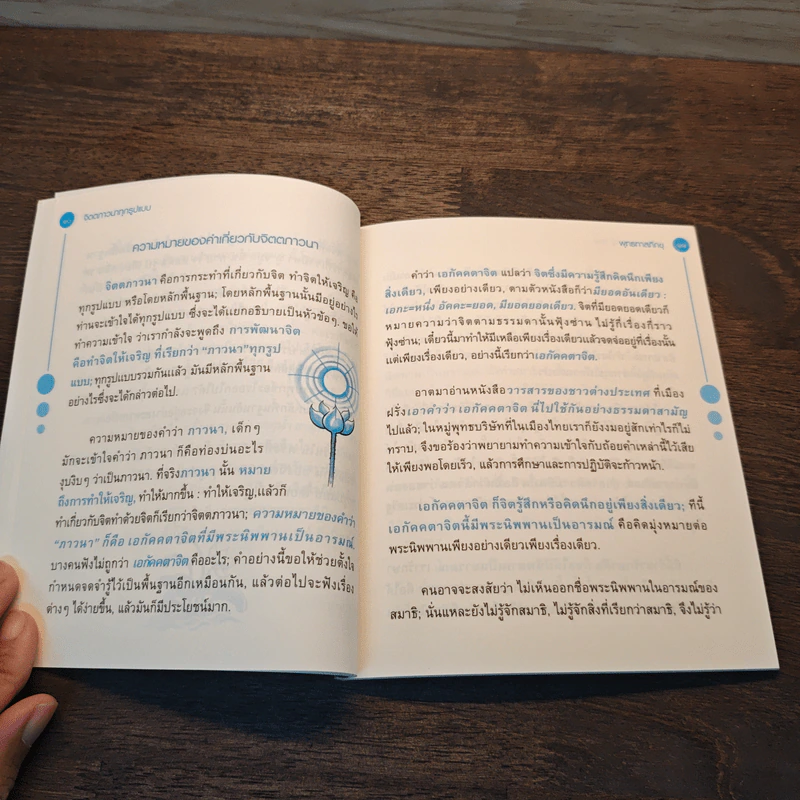 จิตตภาวนาทุกรูปแบบ
ความหมายของคำเกี่ยวกับจิตตภาวนา
จิตตภาวนา คือการกระทำที่เกี่ยวกับจิต ทำจิตให้เจริญ คือ
ทุกรูปแบบ หรือโดยหลักพื้นฐาน; โดยหลักพื้นฐานนั้นมีอยู่อย่างไร
ท่านจะเข้าใจได้ทุกรูปแบบ ซึ่งจะได้แยกอธิบายเป็นหัวข้อๆ. ขอให้
ทำความเข้าใจ ว่าเรากำลังจะพูดถึง การพัฒนาจิต
คือทำจิตให้เจริญ ที่เรียกว่า “ภาวนา”ทุกรูป
แบบ; ทุกรูปแบบรวมกันแล้ว มันมีหลักพื้นฐาน
อย่างไรซึ่งจะได้กล่าวต่อไป.
ความหมายของคำว่า ภาวนา, เด็กๆ
มักจะเข้าใจคำว่า ภาวนา ก็คือท่องบ่นอะไร
งุบงิบๆ ว่าเป็นภาวนา. ที่จริงภาวนา นั้น หมาย
ถึงการทำให้เจริญ, ทำให้มากขึ้น : ทำให้เจริญ,แล้วก็
ทำเกี่ยวกับจิตทำด้วยจิตก็เรียกว่าจิตตภาวนา; ความหมายของคำว่า
“ภาวนา” ก็คือ เอกัคคตาจิตที่มีพระนิพพานเป็นอารมณ์.
บางคนฟังไม่ถูกว่า เอกัคคตาจิต คืออะไร; คำอย่างนี้ขอให้ช่วยตั้งใจ
กำหนดจดจำรู้ไว้เป็นพื้นฐานอีกเหมือนกัน, แล้วต่อไปจะฟังเรื่อง
ต่างๆ ได้ง่ายขึ้น, แล้วมันก็มีประโยชน์มาก.
พุทธทาสภิกขุ
คำว่า เอกัคคตาจิต แปลว่า จิตซึ่งมีความรู้สึกคิดนึกเพียง
สิ่งเดียว, เพียงอย่างเดียว, ตามตัวหนังสือก็ว่ามียอดอันเดียว :
เอกะ=หนึ่ง อัคคะ=ยอด, มียอดยอดเดียว. จิตที่มียอดยอดเดียวก็
หมายความว่าจิตตามธรรมดานั้นฟุ้งซ่าน ไม่รู้กี่เรื่องกี่ราว
ฟุ้งซ่าน; เดี๋ยวนี้มาทำให้มีเหลือเพียงเรื่องเดียวแล้วจดจ่ออยู่ที่เรื่องนั้น
แต่เพียงเรื่องเดียว, อย่างนี้เรียกว่าเอกัคคตาจิต.
อาตมาอ่านหนังสือวารสารของชาวต่างประเทศ ที่เมือง
ฝรั่งเอาคำว่า เอกัคคตาจิต นี่ไปใช้กันอย่างธรรมดาสามัญ
ไปแล้ว; ในหมู่พุทธบริษัทที่ในเมืองไทยเราก็ยังงมอยู่สักเท่าไรก็ไม่
ทราบ, จึงขอร้องว่าพยายามทำความเข้าใจกับถ้อยคำเหล่านี้ไว้เสีย
ให้เพียงพอโดยเร็ว, แล้วการศึกษาและการปฏิบัติจะก้าวหน้า.
เอกัคคตาจิต ก็จิตรู้สึกหรือคิดนึกอยู่เพียงสิ่งเดียว; ทีนี้
เอกัคคตาจิตนี้มีพระนิพพานเป็นอารมณ์ คือคิดมุ่งหมายต่อ
พระนิพพานเพียงอย่างเดียวเพียงเรื่องเดียว.
คนอาจจะสงสัยว่า ไม่เห็นออกชื่อพระนิพพานในอารมณ์ของ
สมาธิ; นั่นแหละยังไม่รู้จักสมาธิ, ไม่รู้จักสิ่งที่เรียกว่าสมาธิ, จึงไม่รู้ว่า